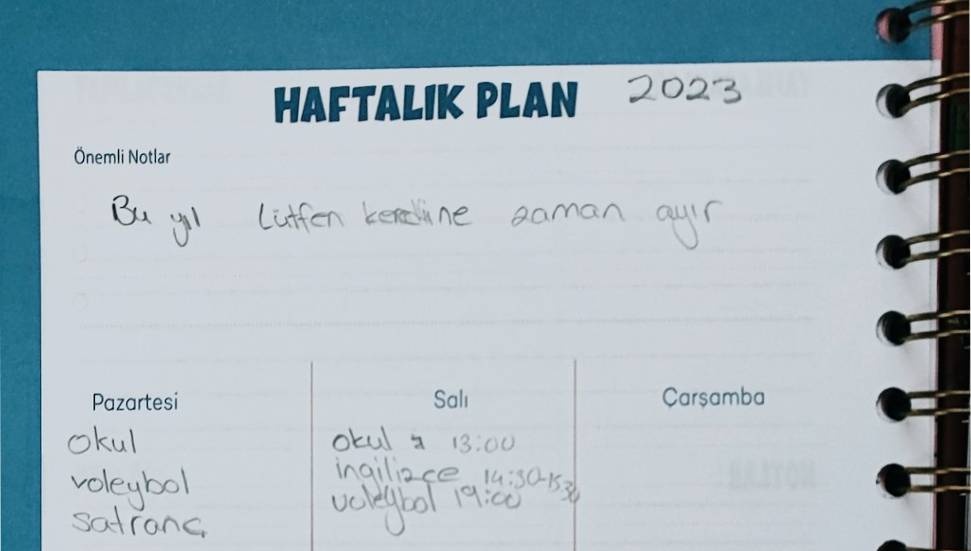 HAFTALIK PLAN 2023
Önemli Notlar
Bu yıl Lütfen kendine zaman ayır
Pazartesi Salı Çarşamba
okul okul 13:00
voleybol ingilizce 14:30-15:30
satranç voleybol 19:00